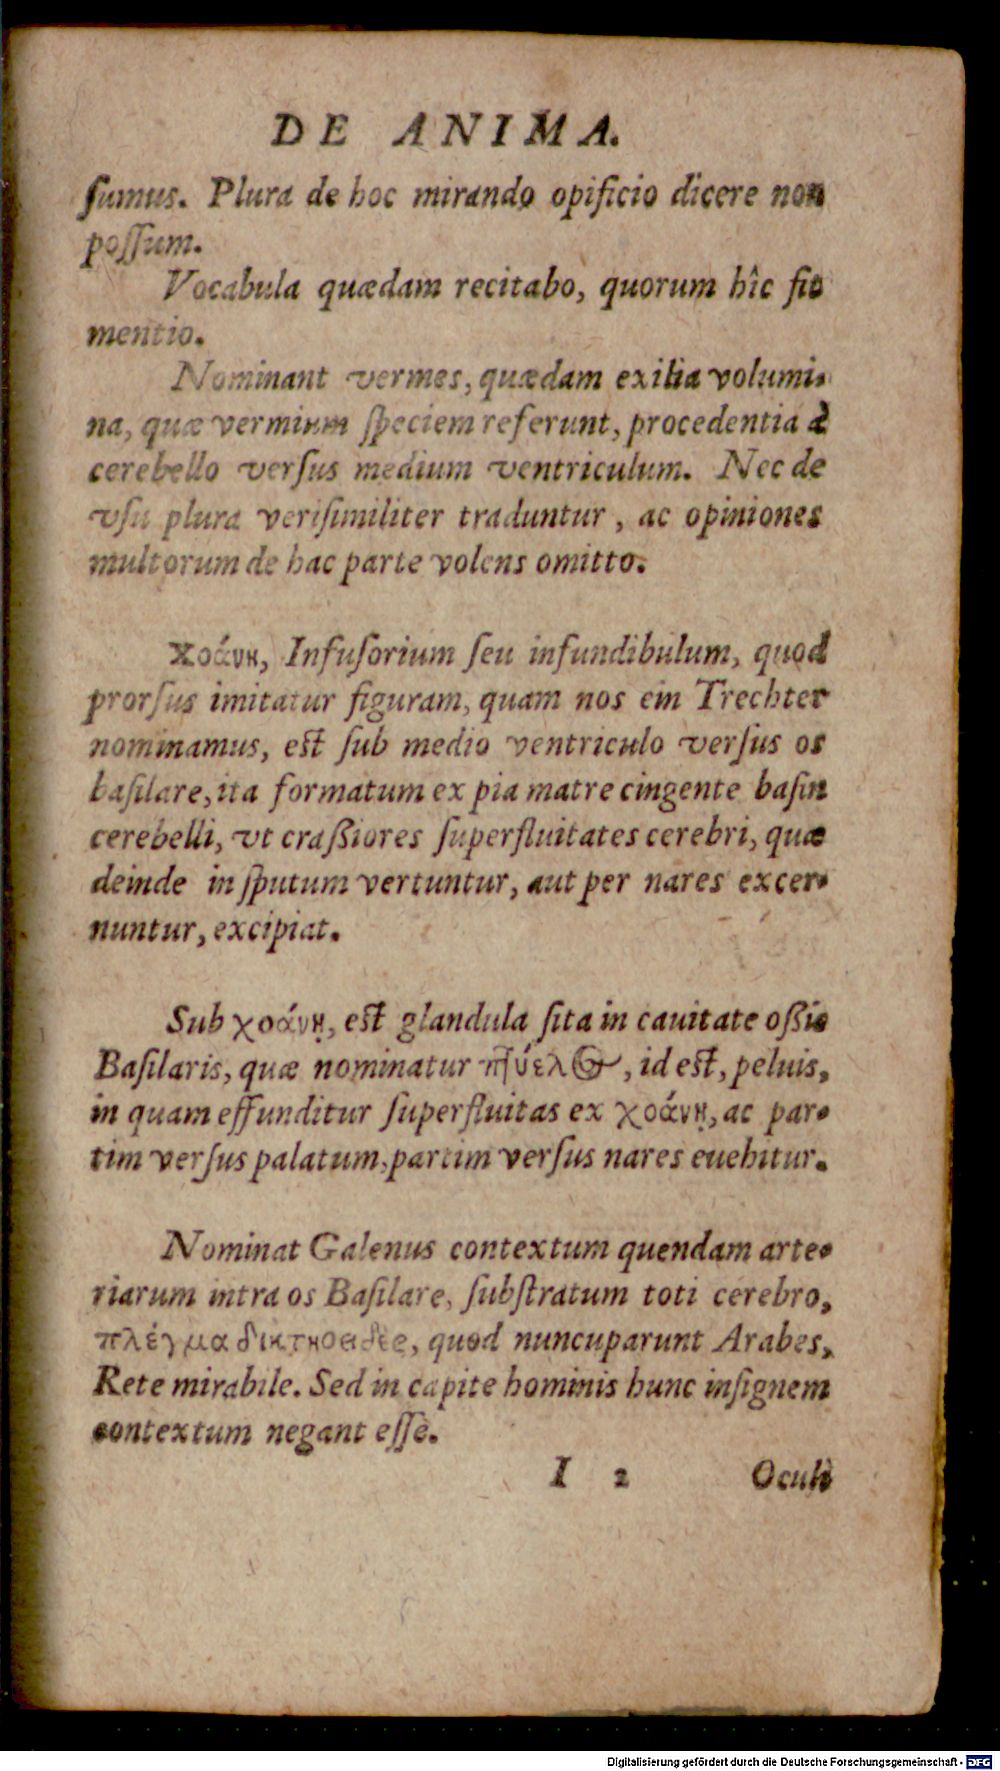 DE ANIMA.
ſumus. Plura de hoc mirando opificio dicere non
poſſum.
Vocabula quædam recitabo, quorum hîc fit
mentio.
Nominant vermes, quædam exilia volumi-
na, quæ vermium ſpeciem referunt, procedentia à
cerebello verſus medium ventriculum. Nec de
vſu plura veriſimiliter traduntur, ac opiniones
multorum de hac parte volens omitto.
χοάνη, Infuſorium ſeu infundibulum, quod
prorſus imitatur figuram, quam nos ein Trechter
nominamus, eſt ſub medio ventriculo verſus os
baſilare, ita formatum ex pia matre cingente baſin
cerebelli, vt craßiores ſuperfluitates cerebri, quæ
deinde in ſputum vertuntur, aut per nares excer-
nuntur, excipiat.
Sub χοάνῃ, eſt glandula ſita in cauitate oßis
Baſilaris, quæ nominatur πύελος, id eſt, peluis,
in quam effunditur ſuperfluitas ex χοάνῃ, ac par-
tim verſus palatum, partim verſus nares euehitur.
Nominat Galenus contextum quendam arte-
riarum intra os Baſilare, ſubſtratum toti cerebro,
πλέγμα δικτηοειδὲς, quod nuncuparunt Arabes,
Rete mirabile. Sed in capite hominis hunc inſignem
contextum negant eſſe.
I 2 Oculi
Digitalisierung gefördert durch die Deutsche Forschungsgemeinschaft - DFG